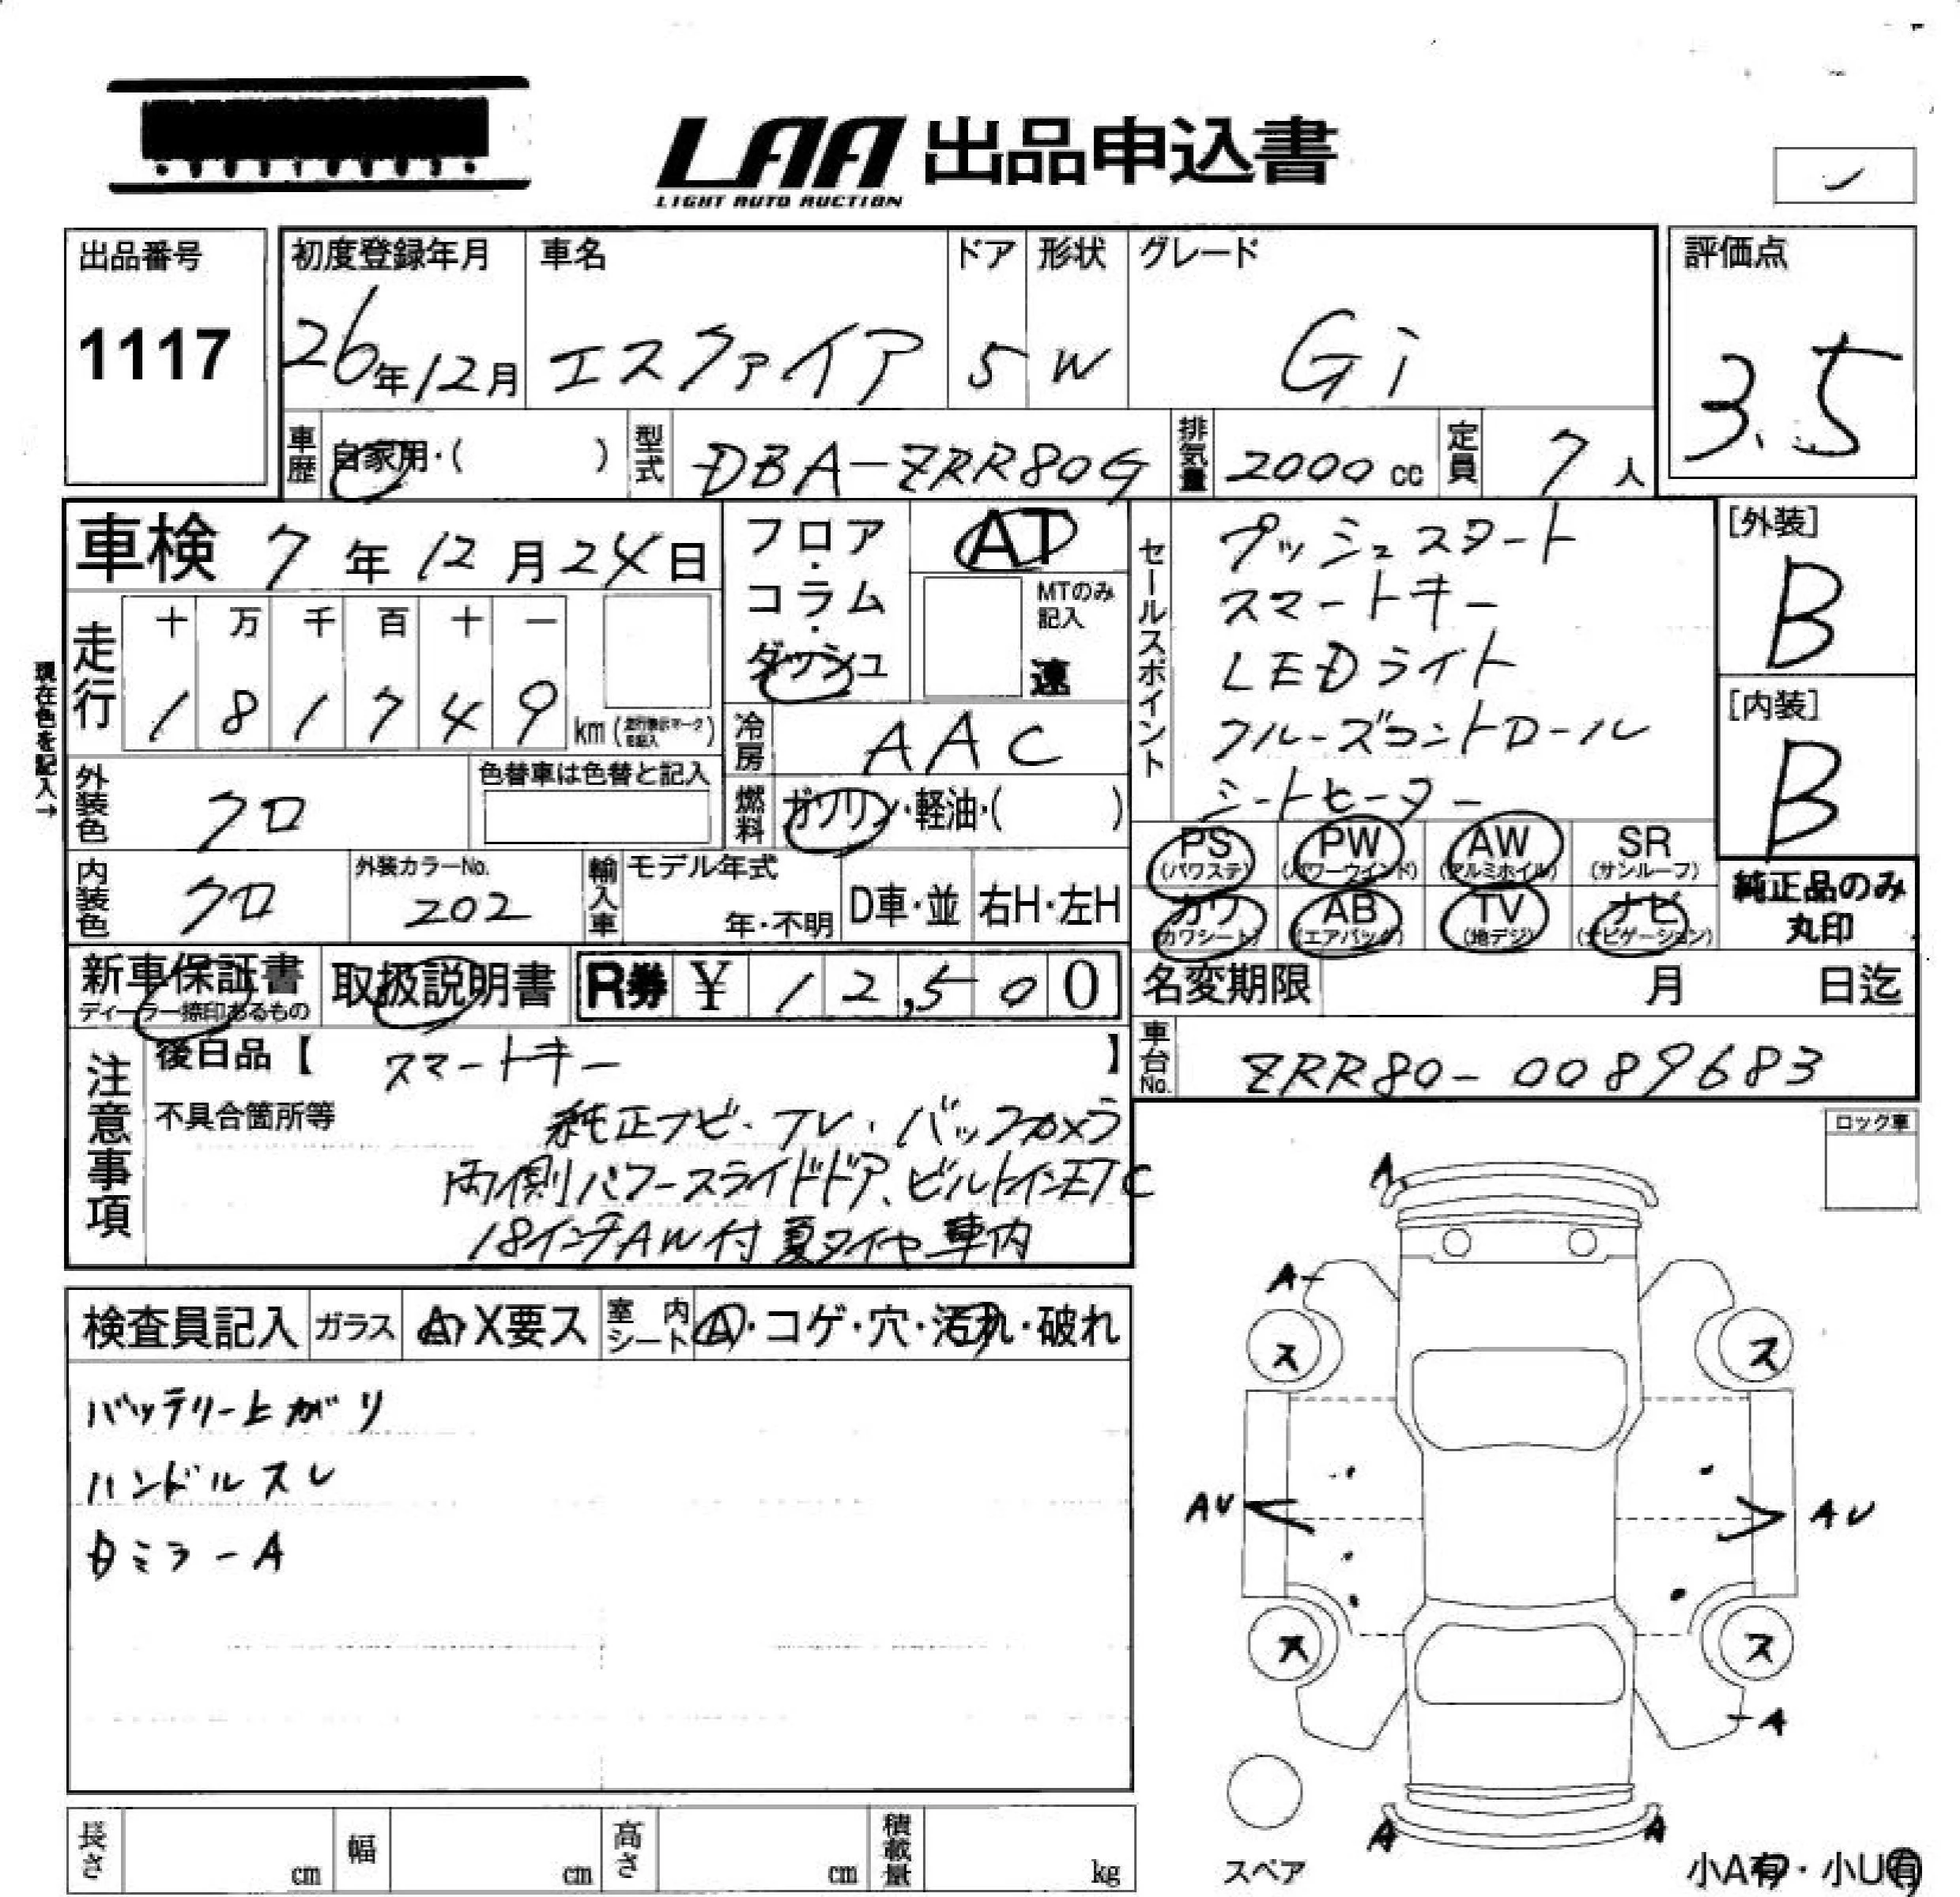 LAA 出品申込書
LIGHT AUTO AUCTION
出品番号
1117
初度登録年月
26年12月
車名
エスクァイア
ドア
5
形状
W
グレード
Gi
評価点
3.5
車歴
自家用・( )
型式
DBA-ZRR80G
排気量
2000cc
定員
7人
車検 7年12月24日
走行
十 万 千 百 十 一
1 8 1 7 4 9 km
現在色を記入→
フロア・コラム・ダッシュ
AT
MTのみ記入
速
冷房
AAC
燃料
ガソリン・軽油・( )
セールスポイント
プッシュスタート
スマートキー
LEDライト
クルーズコントロール
シートヒーター
[外装]
B
[内装]
B
外装色
クロ
色替車は色替と記入
内装色
クロ
外装カラーNo.
202
輸入車
モデル年式
年・不明
D車・並
右H・左H
PS (パワステ)
PW (パワーウインド)
AW (アルミホイル)
SR (サンルーフ)
カワ (カワシート)
AB (エアバック)
TV (地デジ)
ナビ (ナビゲーション)
純正品のみ
丸印
新車保証書
ディーラー捺印あるもの
取扱説明書
R券 ¥ 12,500
名変期限 月 日迄
車台No.
ZRR80-0089683
注意事項
後日品【 スマートキー 】
不具合箇所等
純正ナビ・TV・バックカメラ
両側パワースライドドア、ビルトインETC
18インチAW付夏タイヤ車内
ロック車
検査員記入
ガラス
A・X要ス
室内シート
A・コゲ・穴・汚れ・破れ
バッテリー上がり
ハンドルスレ
カミラーA
A
A
ス
ス
AU
AU
ス
ス
A
A
A
スペア
小A有・小U有
長さ cm
幅 cm
高さ cm
積載量 kg